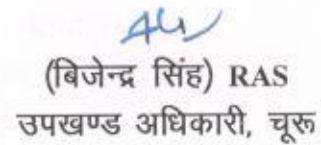 (बिजेन्द्र सिंह) RAS
उपखण्ड अधिकारी, चूरू